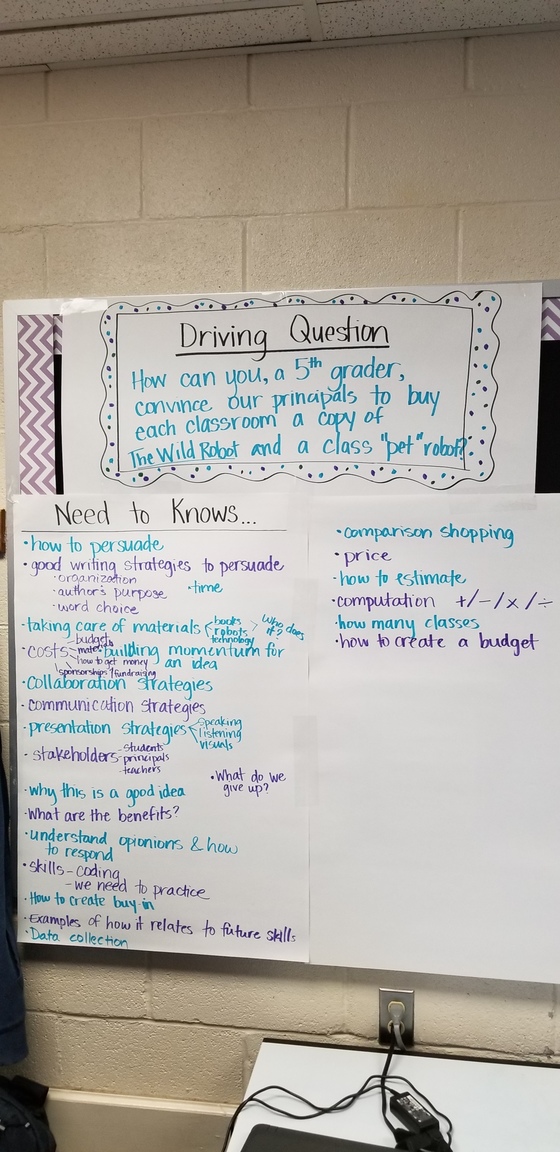 Driving Question
How can you, a 5th grader,
convince our principals to buy
each classroom a copy of
The Wild Robot and a class "pet" robot?
Need to Knows...
• how to persuade
• good writing strategies to persuade
• organization
• author's purpose
• word choice
• time
• taking care of materials
books
robots
technology
Who does it?
• costs
budget
materials
how to get money
sponsorships/fundraising
• building momentum for
an idea
• collaboration strategies
• communication strategies
• presentation strategies
speaking
listening
visuals
• stakeholders
students
principals
teachers
• What do we
give up?
• why this is a good idea
• What are the benefits?
• understand opionions & how
to respond
• skills - coding
- we need to practice
• How to create buy-in
• Examples of how it relates to future skills
• Data collection
• comparison shopping
• price
• how to estimate
• computation +/-/x/÷
• how many classes
• how to create a budget